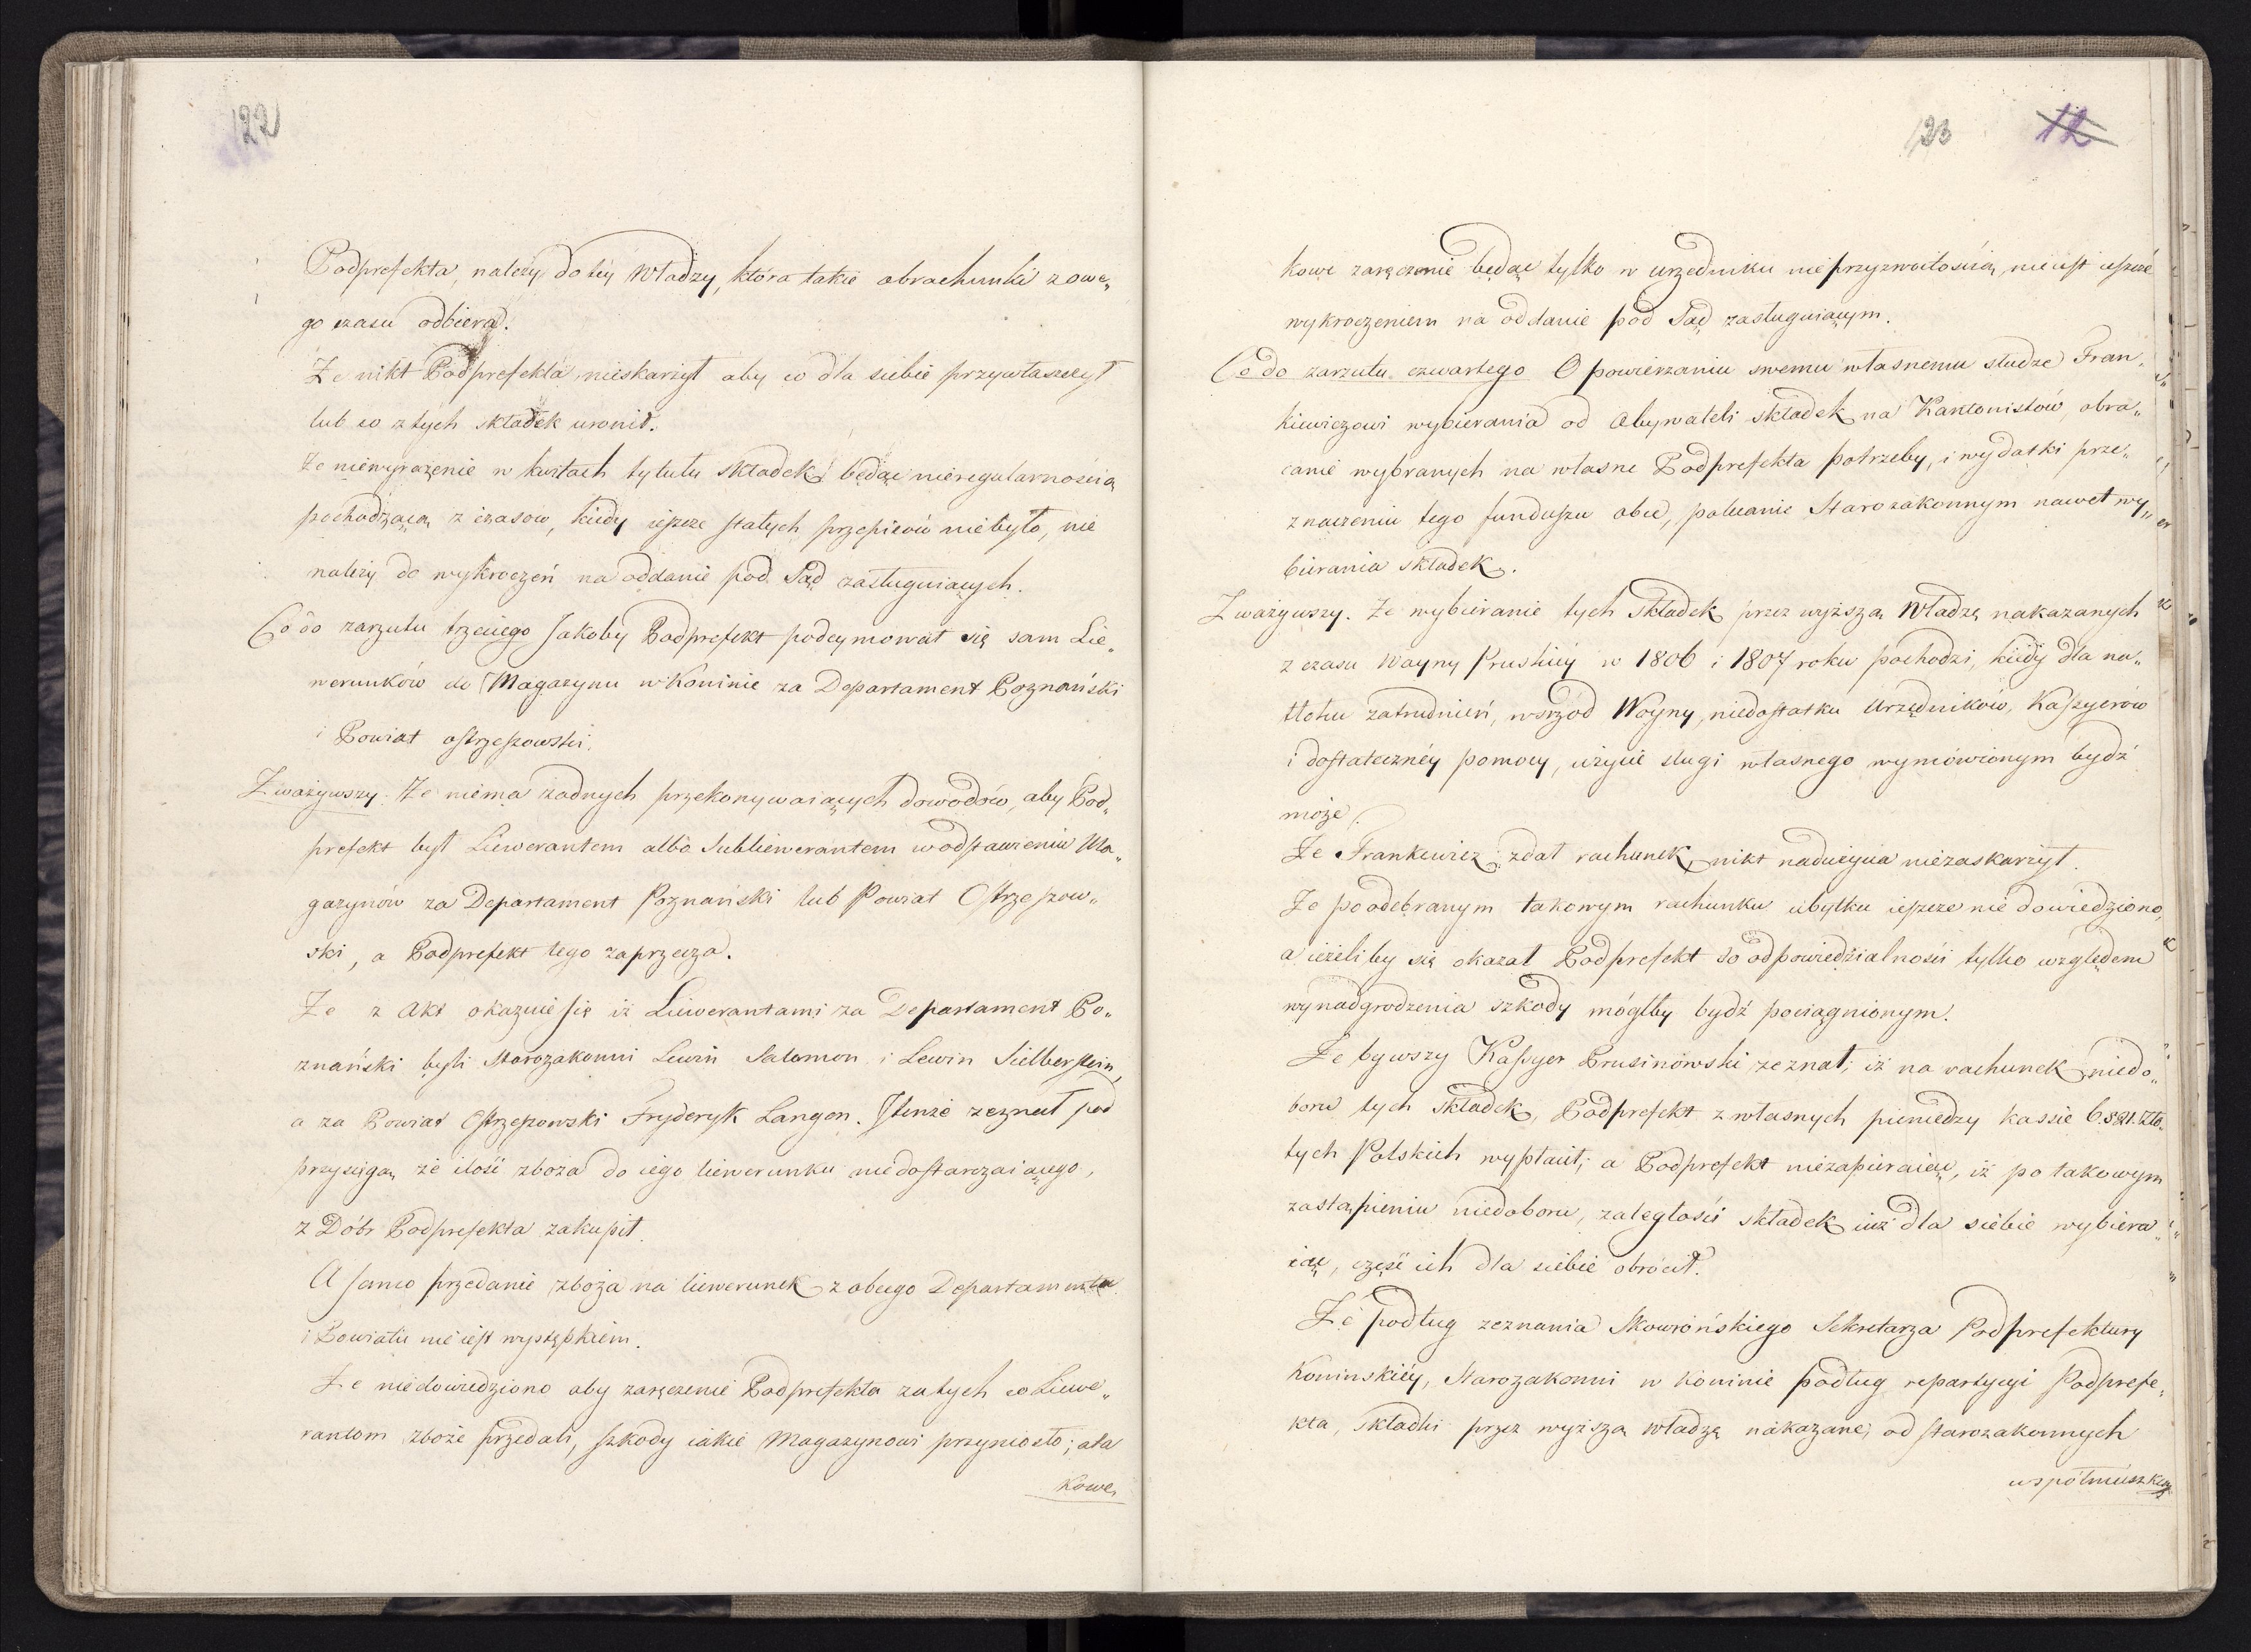 122
Podprefekta, należy do téy Władzy, która takie obrachunki z owe„
go czasu odbiera.
Że nikt Podprefekta nieskarżył aby co dla siebie przywłaszczył
lub co z tych składek uronił.
Że niewyrażenie w kwitach tytułu składek będąc nieregularnością
pochodzącą z czasow, kiedy ieszcze stałych przepisów nie było, nie
należy do wykroczeń na oddanie pod Sąd zasługuiących.
Co do zarzutu trzeciego Jakoby Podprefekt podeymował się sam Lie„
werunków do Magazynu w Koninie za Departament Poznański
i Powiat ostrzeszowski.
Zważywszy. Że niema żadnych przekonywaiących dowodów, aby Pod„
prefekt był Liewerantem albo Subliewerantem w odstawieniu Ma„
gazynów za Departament Poznański lub Powiat Ostrzeszow„
ski, a Podprefekt tego zaprzecza.
Że z Akt okazuie się iż Liewerantami za Departament Po„
znański byli Starozakonni Lewin Salomon i Lewin Sielberstein,
a za Powiat Ostrzeszowski Fryderyk Langen. Ktenże zeznał pod
przysięgą że ilość zboża do iego liewerunku niedostarczaiącego,
z Dóbr Podprefekta zakupił.
A samo przedanie zboża na liewerunek z obcego Departamentu
i Powiatu nie iest występkiem.
Że niedowiedziono aby zaręczenie Podprefekta za tych co Liewe„
rantom zboże przedali, szkody iakie Magazynowi przyniosło; a ta
kowe,
123
12
kowe zaręczenie będąc tylko w urzędniku nieprzyzwoitością, nie iest ieszcze
wykroczeniem na oddanie pod Sąd zasługuiącym.
Co do zarzutu czwartego O powierzaniu swemu własnemu słudze Fran„
kiewiczowi wybierania od Obywateli składek na Kantonistów, obra„
canie wybranych na własne Podprefekta potrzeby, i wydatki prze„
znaczeniu tego funduszu obce, polecanie Starozakonnym nawet wy„
bierania składek.
Zważywszy. Że wybieranie tych Składek przez wyższą Władzę nakazanych
z czasu Woyny Pruskiéy w 1806 i 1807 roku pochodzi, kiedy dla na„
tłoku zatrudnień, wsrzód Woyny, niedostatku Urzędników, Kassyerów
i dostatecznéy pomocy, użycie sługi własnego wymówionym bydź
może.
Że Frankiewicz zdał rachunek nikt nadużycia niezaskarżył.
Że po odebranym takowym rachunku ubytku ieszcze nie dowiedziono,
a ieżeliby się okazał Podprefekt do odpowiedzialności tylko względem
wynadgrodzenia szkody mógłby bydź pociągnionym.
Że bywszy Kassyer Prusinowski zeznał, iż na rachunek niedo„
boru tych składek, Podprefekt z własnych pieniędzy kassie 6.821. Zło„
tych Polskich wypłacił; a Podprefekt niezapieraiąc, iż po takowym
zastąpieniu niedoboru, zaległości składek iuż dla siebie wybiera„
iąc, część ich dla siebie obrócił.
Że podług zeznania Skowrońskiego Sekretarza Podprefektury
Konińskiéy, Starozakonni w Koninie podług repartycyi Podprefe„
kta, składki przez wyższą władzę nakazane, od starozakonnych